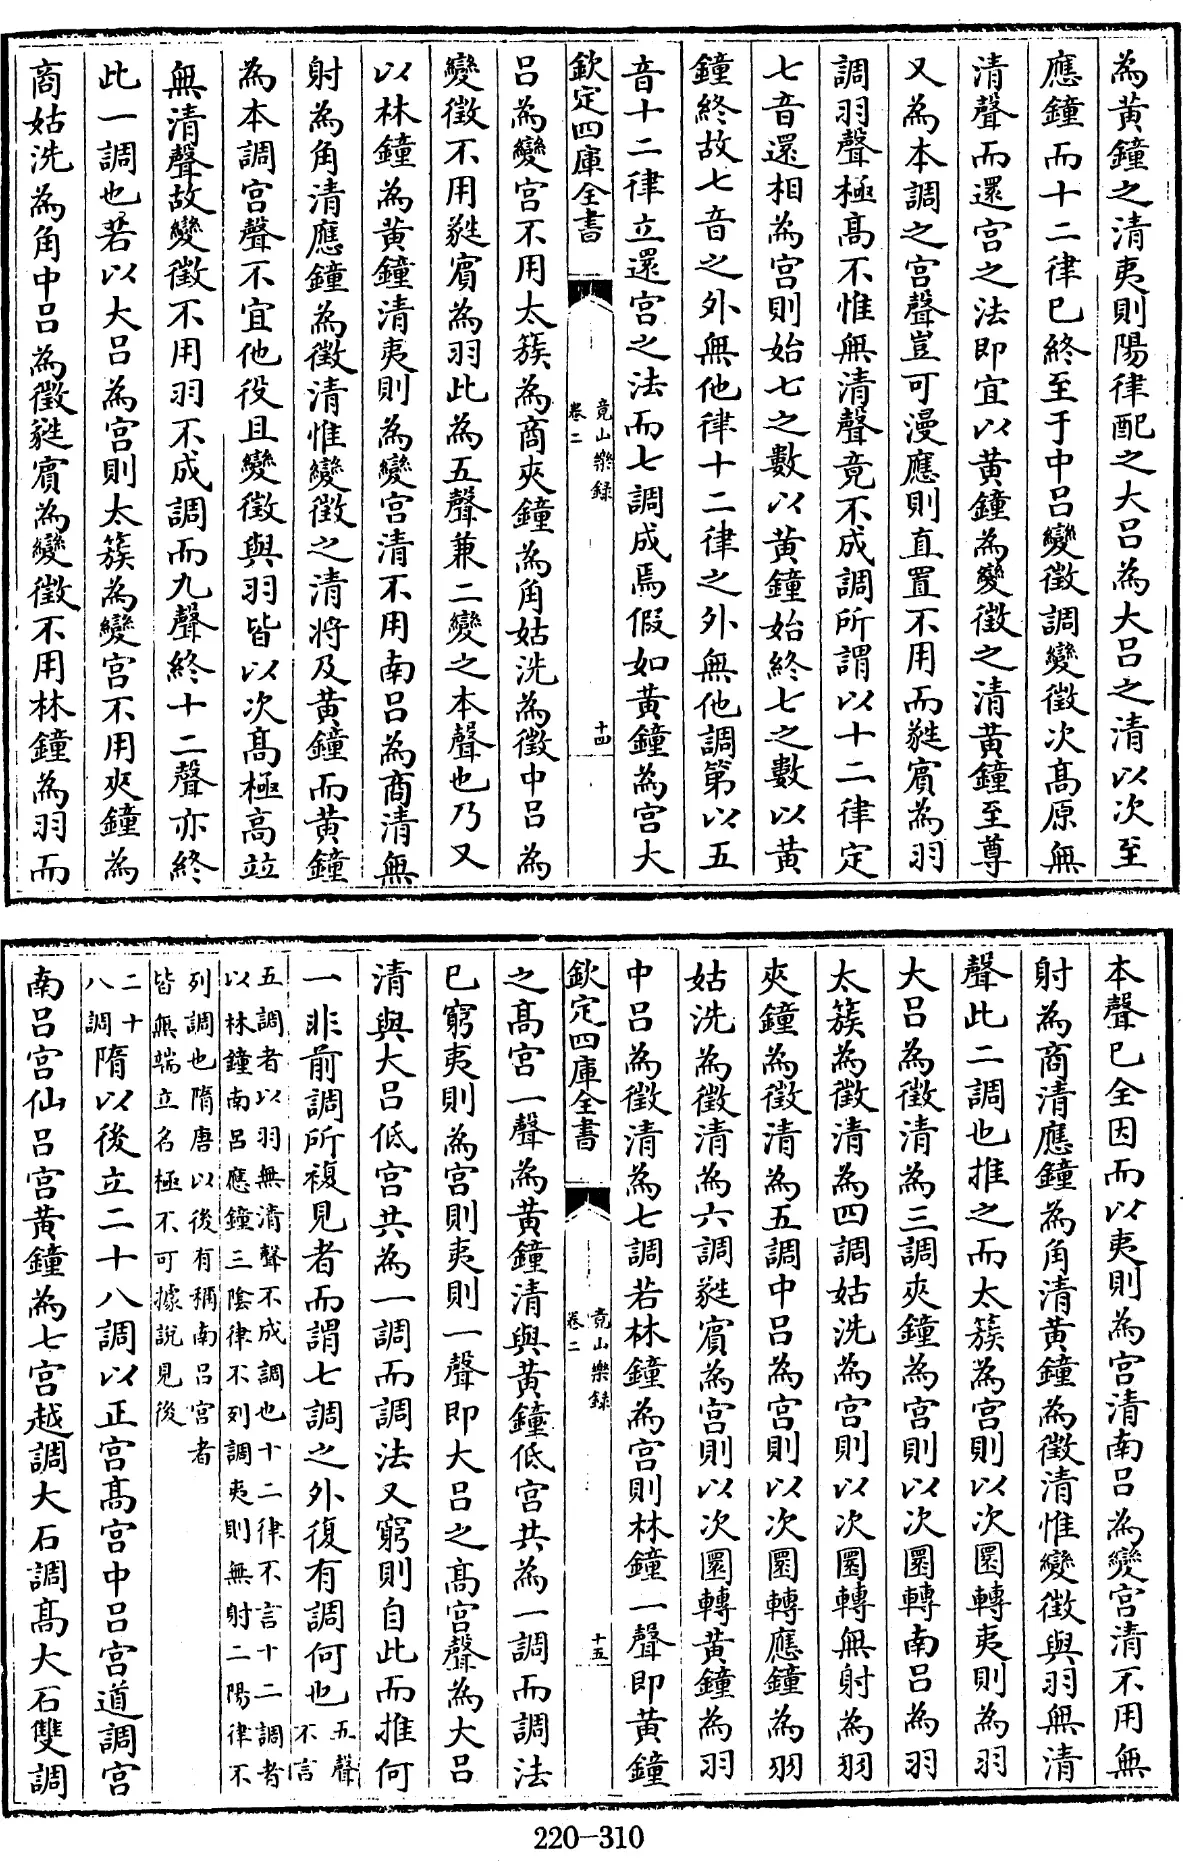 為黄鐘之清夷則陽律配之大呂為大呂之清以次至
應鐘而十二律已終至于中呂變徵調變徵次髙原無
清聲而還宫之法即宜以黄鐘為變徵之清黄鐘至尊
又為本調之宫聲豈可漫應則直置不用而蕤賓為羽
調羽聲極髙不惟無清聲竟不成調所謂以十二律定
七音還相為宫則始七之數以黄鐘始終七之數以黄
鐘終故七音之外無他律十二律之外無他調第以五
音十二律立還宫之法而七調成焉假如黄鐘為宫大
欽定四庫全書
竟山樂録
卷二
十四
呂為變宫不用太簇為商夾鐘為角姑洗為徵中呂為
變徵不用蕤賓為羽此為五聲兼二變之本聲也乃又
以林鐘為黄鐘清夷則為變宫清不用南呂為商清無
射為角清應鐘為徵清惟變徵之清將及黄鐘而黄鐘
為本調宫聲不宜他役且變徵與羽皆以次髙極髙竝
無清聲故變徵不用羽不成調而九聲終十二聲亦終
此一調也若以大呂為宫則太簇為變宫不用夾鐘為
商姑洗為角中呂為徵蕤賓為變徵不用林鐘為羽而
本聲已全因而以夷則為宫清南呂為變宫清不用無
射為商清應鐘為角清黄鐘為徵清惟變徵與羽無清
聲此二調也推之而太簇為宫則以次圜轉夷則為羽
大呂為徵清為三調夾鐘為宫則以次圜轉南呂為羽
太簇為徵清為四調姑洗為宫則以次圜轉無射為羽
夾鐘為徵清為五調中呂為宫則以次圜轉應鐘為羽
姑洗為徵清為六調蕤賓為宫則以次圜轉黄鐘為羽
中呂為徵清為七調若林鐘為宫則林鐘一聲即黄鐘
欽定四庫全書
竟山樂録
卷二
十五
之髙宫一聲為黄鐘清與黄鐘低宫共為一調而調法
已窮夷則為宫則夷則一聲即大呂之髙宫聲為大呂
清與大呂低宫共為一調而調法又窮則自此而推何
一非前調所複見者而謂七調之外復有調何也五聲
不言
五調者以羽無清聲不成調也十二律不言十二調者
以林鐘南呂應鐘三陰律不列調夷則無射二陽律不
列調也隋唐以後有稱南呂宫者
皆無端立名極不可據説見後
二十
八調隋以後立二十八調以正宫髙宫中呂宫道調宫
南呂宫仙呂宫黄鐘為七宫越調大石調髙大石雙調
220-310